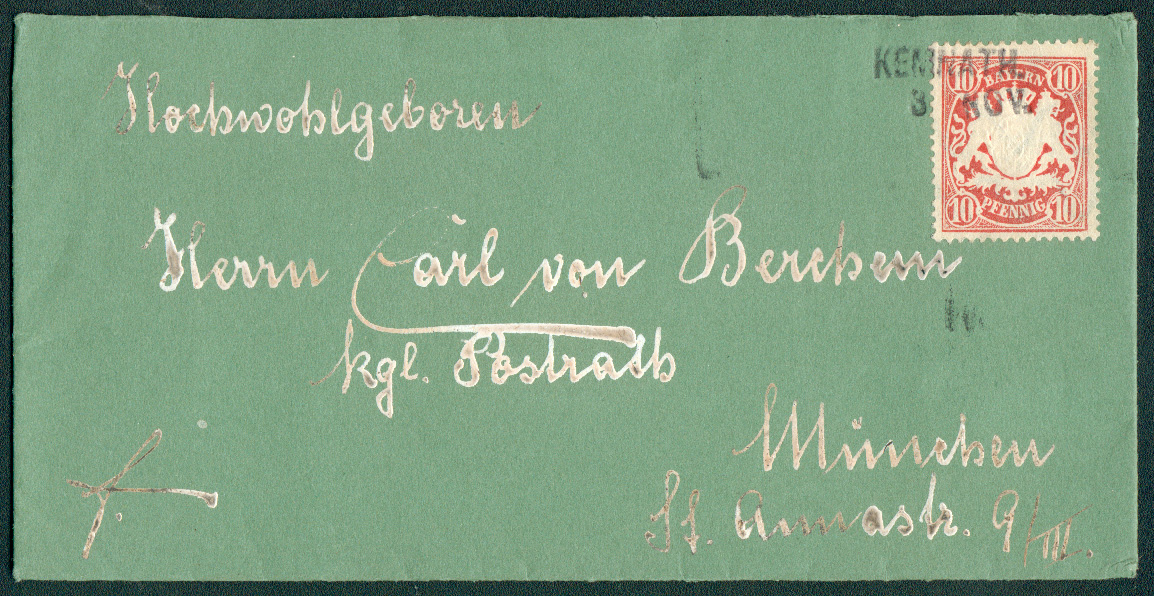 KEMNATH
8 NOV.
10 BAYERN 10
10 PFENNIG 10
Hochwohlgeboren
Herrn Carl von Berchem
kgl. Postrath
München
f.
St. Annastr. 9/III.